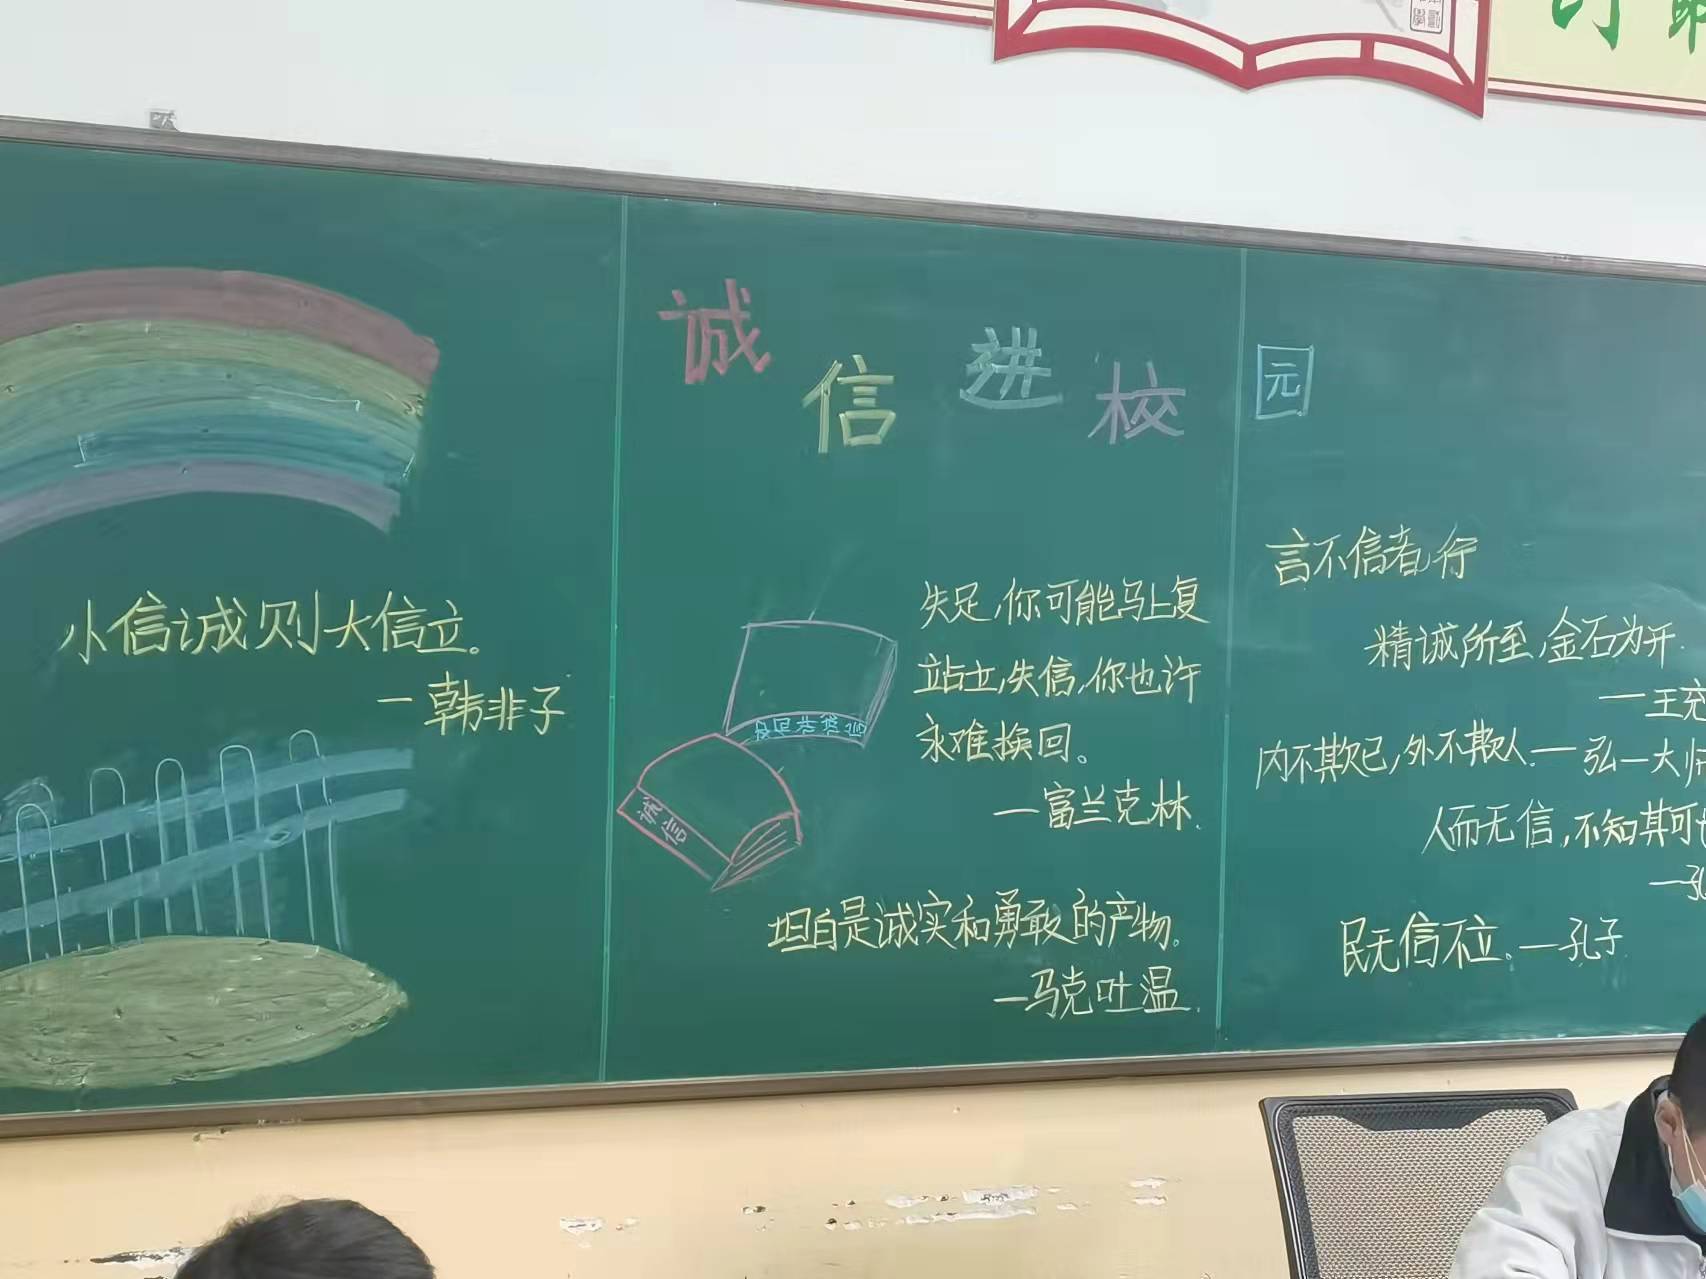 诚信进校园
小信诚则大信立。
一韩非子
失足,你可能马上复
站立,失信,你也许
永难换回。
一富兰克林.
诚信
坦白是诚实和勇敢的产物。
一马克吐温.
言不信者,行
精诚所至,金石为开.
一王充
内不欺己,外不欺人.一弘一大师
人而无信,不知其可也
一孔
民无信不立。一孔子